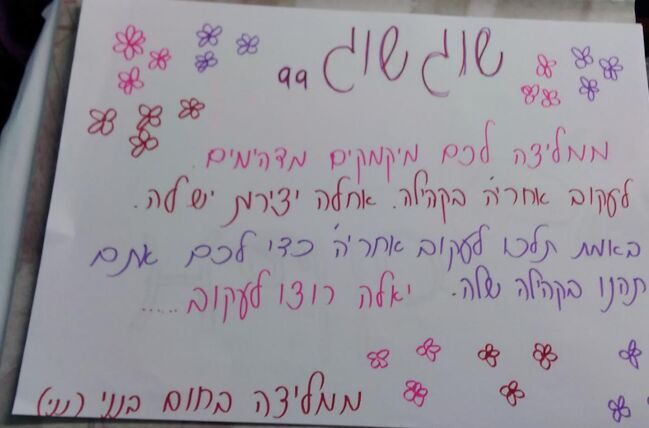 שוגשוג 99
ממליצה לכם מיקמקים מדהימים.
לעקוב אחריה בקהילה. אחלה יצירות יש לה.
באמת תלכו לעקוב אחריה כדי לכם אתם
תהנו בקהילה שלה. יאלה רוצו לעקוב.....
ממליצה בחום